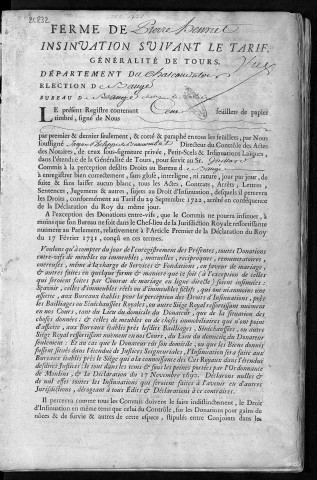 2C832
FERME DE Pierre Henriet
INSINUATION SUIVANT LE TARIF.
GÉNÉRALITÉ DE TOURS.
DÉPARTEMENT du
ELECTION DE Baugé
BUREAU DE Baugé
LE présent Registre contenant feuillets de papier
timbré, signé de Nous
par premier & dernier feuillet, & cotté & paraphé en tous les feuillets, par Nous
soussigné Directeur du Contrôle des Actes
des Notaires, de ceux sous-signature privée, Petit-Scels & Insinuations Laïques,
dans l'étendue de la Généralité de Tours, pour servir au Sr.
Commis à la perception desdits Droits au Bureau d
à enregistrer bien correctement, sans glose, interligne, ni rature, jour par jour, de
suite & sans laisser aucun blanc, tous les Actes, Contrats, Arrêts, Lettres,
Sentences, Jugemens & autres, sujets au Droit d'Insinuation, desquels il percevra
les Droits, conformément au Tarif du 29 Septembre 1722, arrêté en conséquence
de la Déclaration du Roy du même jour.
A l'exception des Donations entre-vifs, que le Commis ne pourra insinuer, à
moins que son Bureau ne soit dans le Chef-lieu de la Jurisdiction Royale ressortissante
nuëment au Parlement, relativement à l'Article Premier de la Déclaration du Roy
du 17 Février 1731, conçû en ces termes.
Voulons qu'à compter du jour de l'enregistrement des Présentes, toutes Donations
entre-vifs de meubles ou immeubles, mutuelles, réciproques, rémuneratoires,
onereuses, même à la charge de Services & Fondations, en faveur de mariage &
& autres faites en quelque forme & maniere que ce soit (à l'exception de celles
qui seroient faites par Contrat de mariage en ligne directe) soient insinuées ;
Sçavoir, celles d'immeubles réels ou d'immeubles fictifs, qui ont néanmoins une
assiette, aux Bureaux établis pour la perception des Droits d'Insinuation, près
les Bailliages ou Sénéchaussées Royales, ou autre Siége Royal ressortissant nuëment
en nos Cours, tant du Lieu du domicile du Donateur, que de la situation des
choses données ; & celles de meubles ou de choses immobiliaires qui n'ont point
d'assiette, aux Bureaux établis près lesdits Bailliages, Sénéchaussées, ou autre
Siége Royal ressortissant nuëment en nos Cours, du Lieu du domicile du Donateur
seulement : Et au cas que le Donateur eût son domicile, ou que les Biens donnés
fussent situés dans l'étendue de Justices Seigneuriales, l'Insinuation sera faite aux
Bureaux établis près le Siége qui a la connoissance des Cas Royaux dans l'étendue
desdites Justices : le tout dans les tems & sous les peines portées par l'Ordonnance
de Moulins, & la Déclaration du 17 Novembre 1690. Déclarons nulles &
de nul effet toutes les Insinuations qui seroient faites à l'avenir en d'autres
Jurisdictions, dérogeant à tous Edits & Déclarations à ce contraires.
Il percevra comme tous les Commis doivent le faire indistinctement, le Droit
d'Insinuation en même tems que celui du Contrôle, sur les Donations pour gains de
nôces & de survie & autres de cette espece, stipulés entre Conjoints dans les